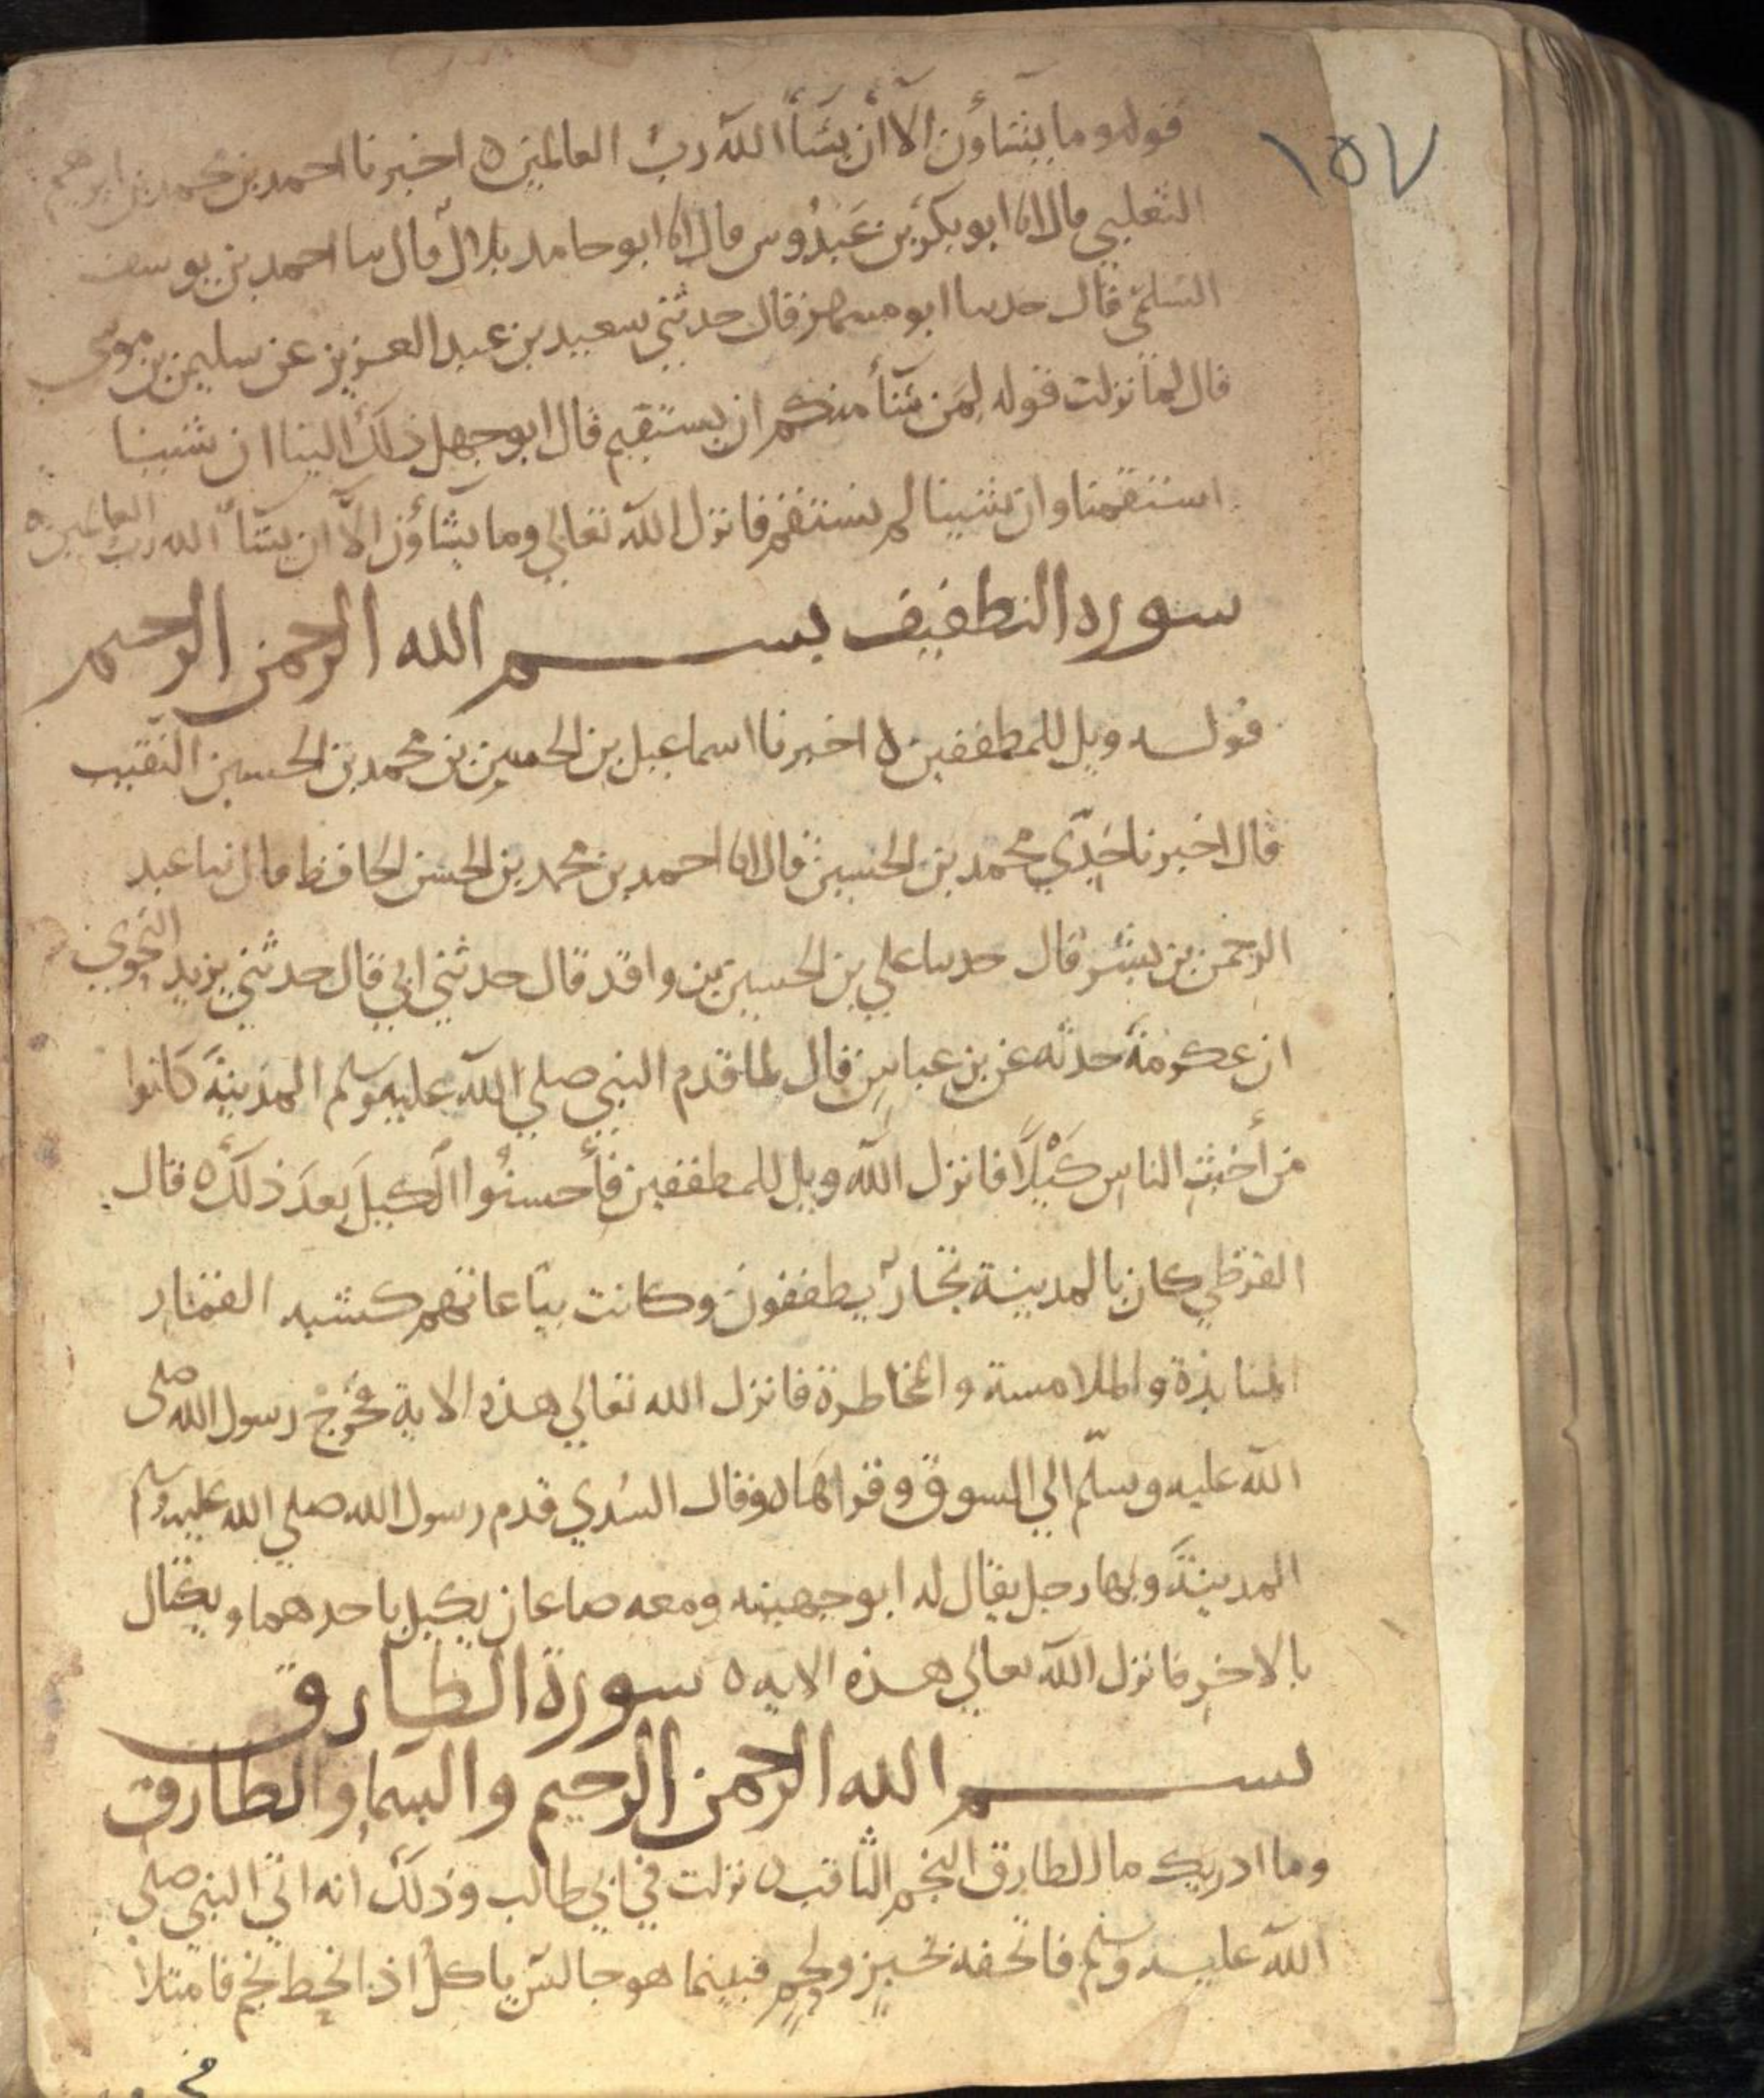 ١٥٧
قوله وما يشاؤن الا أن يشأ الله رب العالمين ٥ اخبرنا احمد بن محمد بن ابرهيم
الثعلبي قال انا ابو بكر بن عبدوس قال انا ابو حامد بلال قال سا احمد بن يوسف
السلمي قال حدسا ابو مسهر قال حدثني سعيد بن عبد العزيز عن سليمن بن موسى
قال لما نزلت قوله لمن شآ منكم ان يستقيم قال ابو جهل ذلك الينا ان شينا
استقمنا وان شينا لم نستقم فانزل الله تعالي وما يشاؤن الا ان يشآ الله رب العالمين ٥
سوره التطفيف بسم الله الرحمن الرحيم
قوله ويل للمطففين ٥ اخبرنا اسماعيل بن الحسين بن محمد بن الحسين النقيب
قال اخبرنا جدي محمد بن الحسين قال انا احمد بن محمد بن الحسن الحافظ قال نبا عبد
الرحمن بن بشر قال حدسا علي بن الحسين بن واقد قال حدثني ابي قال حدثني يزيد النحوي
ان عكرمة حدثه عن بن عباس قال لما قدم النبي صلي الله عليه وسلم المدينة كانوا
من أخبث الناس كيلا فانزل الله ويل للمطففين فأحسنوا الكيل بعد ذلك ٥ قال
القرظي كان بالمدينة تجار يطففون وكانت بياعاتهم كشبه القمار
المنابذة والملامسة والمخاطرة فانزل الله تعالي هذه الاية فخرج رسول الله صلى
الله عليه وسلم الي السوق وقراها ٥ وقال السدي قدم رسول الله صلى الله عليه وسلم
المدينة وبها رجل يقال له ابو جهينه ومعه صاعان يكيل باحدهما ويكتال
بالاخر فانزل الله تعالي هذه الايه ٥ سورة الطارق
بسم الله الرحمن الرحيم والسما والطارق
وما ادريك ما الطارق النجم الثاقب ٥ نزلت في ابي طالب وذلك انه اتي النبي صلي
الله عليه وسلم فاتحفه بخبز ولحم فبينما هو جالس ياكل اذ انحط نجم فامتلا